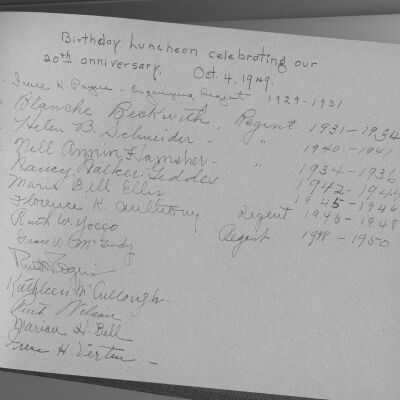 Birthday Luncheon celebrating our
20th anniversary. Oct. 4, 1949.
Irene K. Payne - Organizing Regent 1929-1931
Blanche Beckwith, Regent 1931-1934
Helen B. Schneider - " 1940-1941
Nell Armin Hamsher - " 1934-1936
Nancy Walker Geddes 1942-1944
Marie Bell Ellis 1945-1946
Florence K. Regent 1946-1948
Ruth W. Yocco Regent 1948-1950
Grace W. McGrady
Ruth
Kathleen McCullough.
Ruth Nelson
Marian H. Bell
Irene H. -